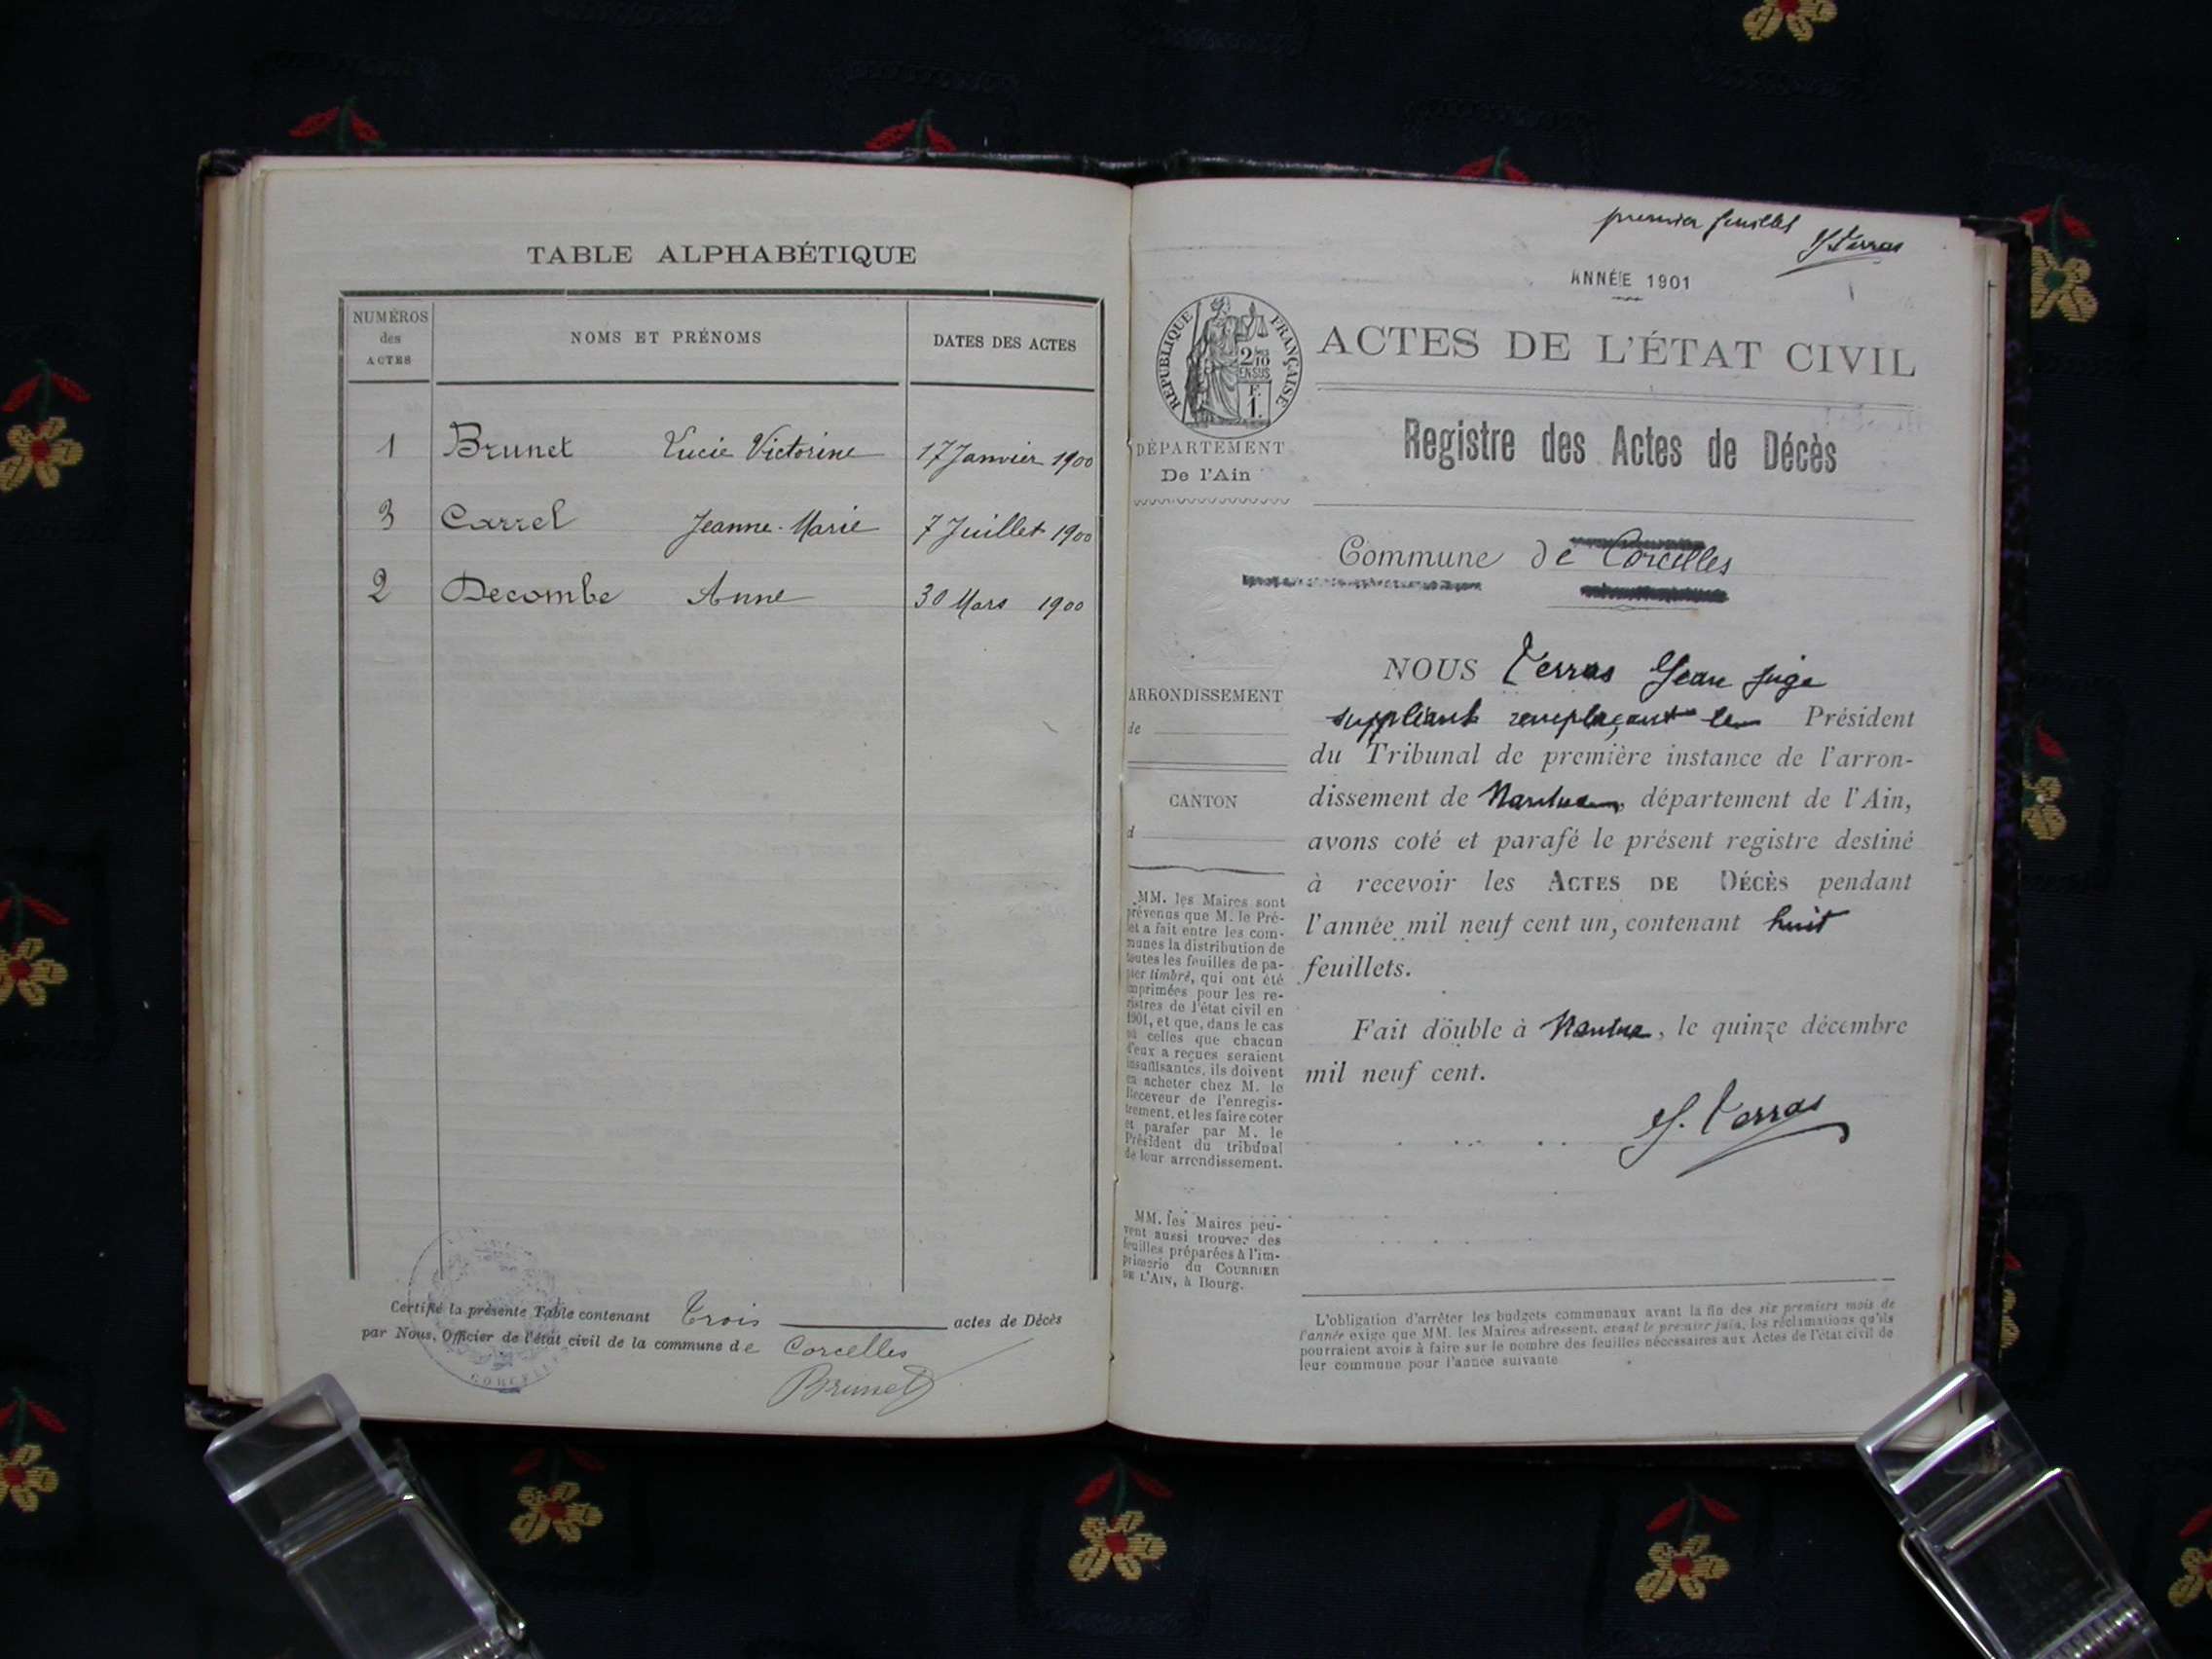 TABLE ALPHABÉTIQUE
NUMÉROS
des
ACTES
NOMS ET PRÉNOMS
DATES DES ACTES
1 Brunet Lucie Victorine 17 Janvier 1900
3 Carrel Jeanne-Marie 7 Juillet 1900
2 Decombe Anne 30 Mars 1900
Certifié la présente Table contenant Trois actes de Décès
par Nous, Officier de l'état civil de la commune de Corcelles
Brunet
premier feuillet J Terras
ANNÉE 1901
RÉPUBLIQUE FRANÇAISE
2/10
EN SUS
F.
1.
ACTES DE L'ÉTAT CIVIL
DÉPARTEMENT
De l'Ain
Registre des Actes de Décès
Commune de Corcelles
ARRONDISSEMENT
de
CANTON
d
MM. les Maires sont
prévenus que M. le Pré-
fet a fait entre les com-
munes la distribution de
toutes les feuilles de pa-
pier timbré, qui ont été
imprimées pour les re-
gistres de l'état civil en
1901, et que, dans le cas
où celles que chacun
d'eux a reçues seraient
insuffisantes, ils doivent
en acheter chez M. le
Receveur de l'enregis-
trement, et les faire coter
et parafer par M. le
Président du tribunal
de leur arrondissement.
MM. les Maires peu-
vent aussi trouver des
feuilles préparées à l'im-
primerie du COURRIER
DE L'AIN, à Bourg.
NOUS Terras Jean juge
suppléant remplaçant le Président
du Tribunal de première instance de l'arron-
dissement de Nantua, département de l'Ain,
avons coté et parafé le présent registre destiné
à recevoir les ACTES DE DÉCÈS pendant
l'année mil neuf cent un, contenant huit
feuillets.
Fait double à Nantua, le quinze décembre
mil neuf cent.
J. Terras
L'obligation d'arrêter les budgets communaux avant la fin des six premiers mois de
l'année exige que MM. les Maires adressent, avant le premier juin, les réclamations qu'ils
pourraient avoir à faire sur le nombre des feuilles nécessaires aux Actes de l'état civil de
leur commune pour l'année suivante